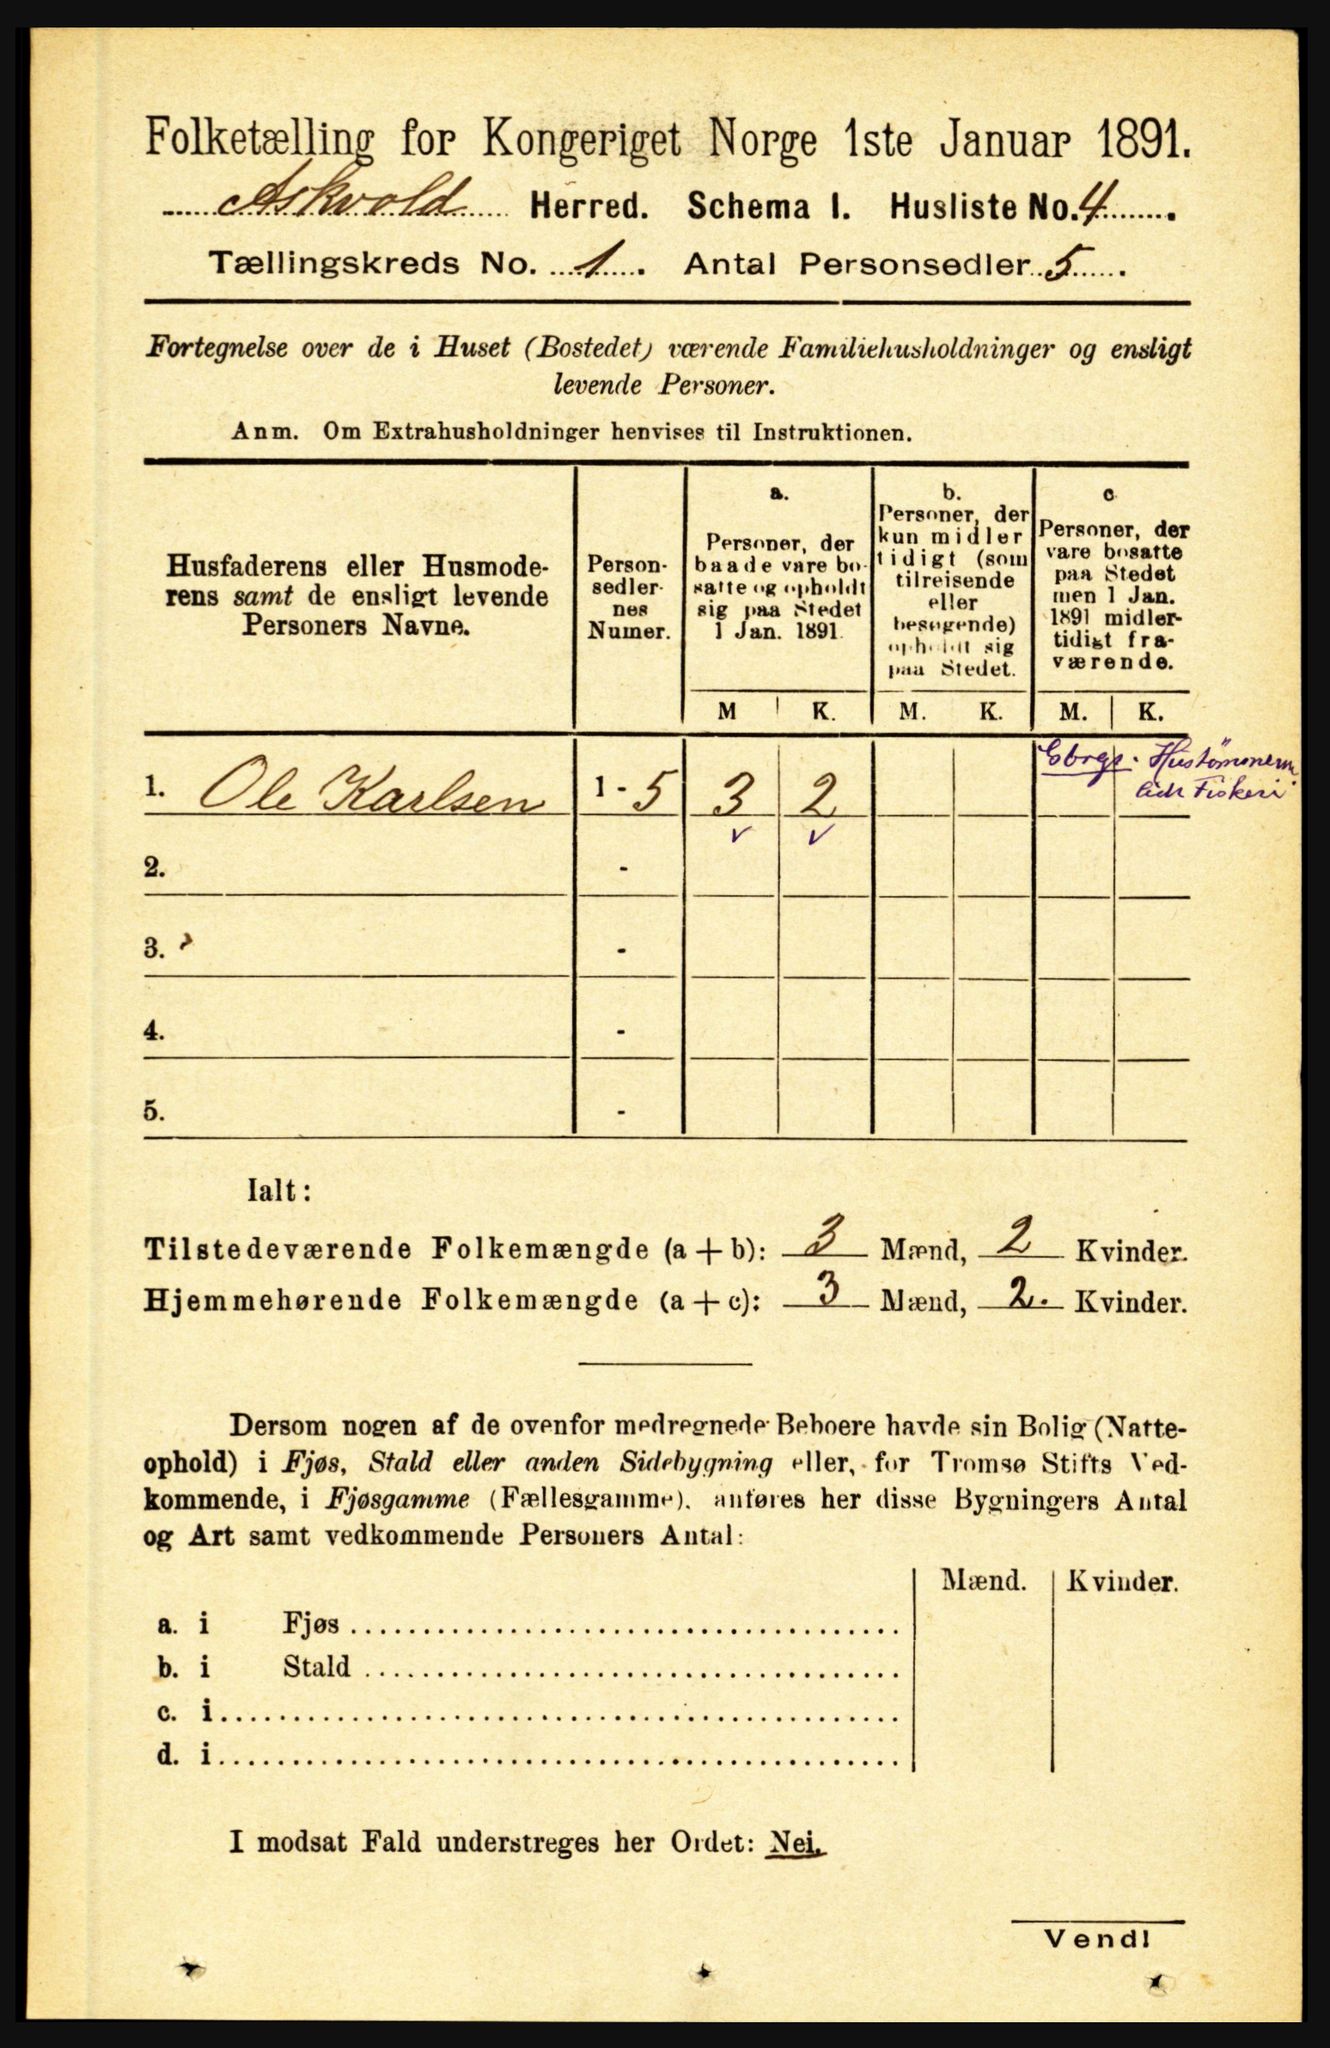 Folketælling for Kongeriget Norge 1ste Januar 1891.
Askvold Herred. Schema I. Husliste No. 4
Tællingskreds No. 1. Antal Personsedler 5.
Fortegnelse over de i Huset (Bostedet) værende Familiehusholdninger og ensligt
levende Personer.
Anm. Om Extrahusholdninger henvises til Instruktionen.
Husfaderens eller Husmode-
rens samt de ensligt levende
Personers Navne.
Person-
sedler-
nes
Numer.
a.
Personer, der
baade vare bo-
satte og opholdt
sig paa Stedet
1 Jan. 1891.
b.
Personer, der
kun midler
tidigt (som
tilreisende
eller
besøgende)
opholdt sig
paa Stedet.
c
Personer, der
vare bosatte
paa Stedet
men 1 Jan.
1891 midler-
tidigt fra-
værende.
M K. M. K. M. K.
1. Ole Karlsen 1 - 5 3 2
Fiskeri
2. -
3. -
4. -
5. -
Ialt:
Tilstedeværende Folkemængde (a + b): 3 Mænd, 2 Kvinder.
Hjemmehørende Folkemængde (a + c): 3 Mænd, 2. Kvinder.
Dersom nogen af de ovenfor medregnede Beboere havde sin Bolig (Natte-
ophold) i Fjøs, Stald eller anden Sidebygning eller, for Tromsø Stifts Ved-
kommende, i Fjøsgamme (Fællesgamme). anføres her disse Bygningers Antal
og Art samt vedkommende Personers Antal:
Mænd. Kvinder.
a. i Fjøs
b. i Stald
c. i
d. i
I modsat Fald understreges her Ordet: Nei.
Vend!